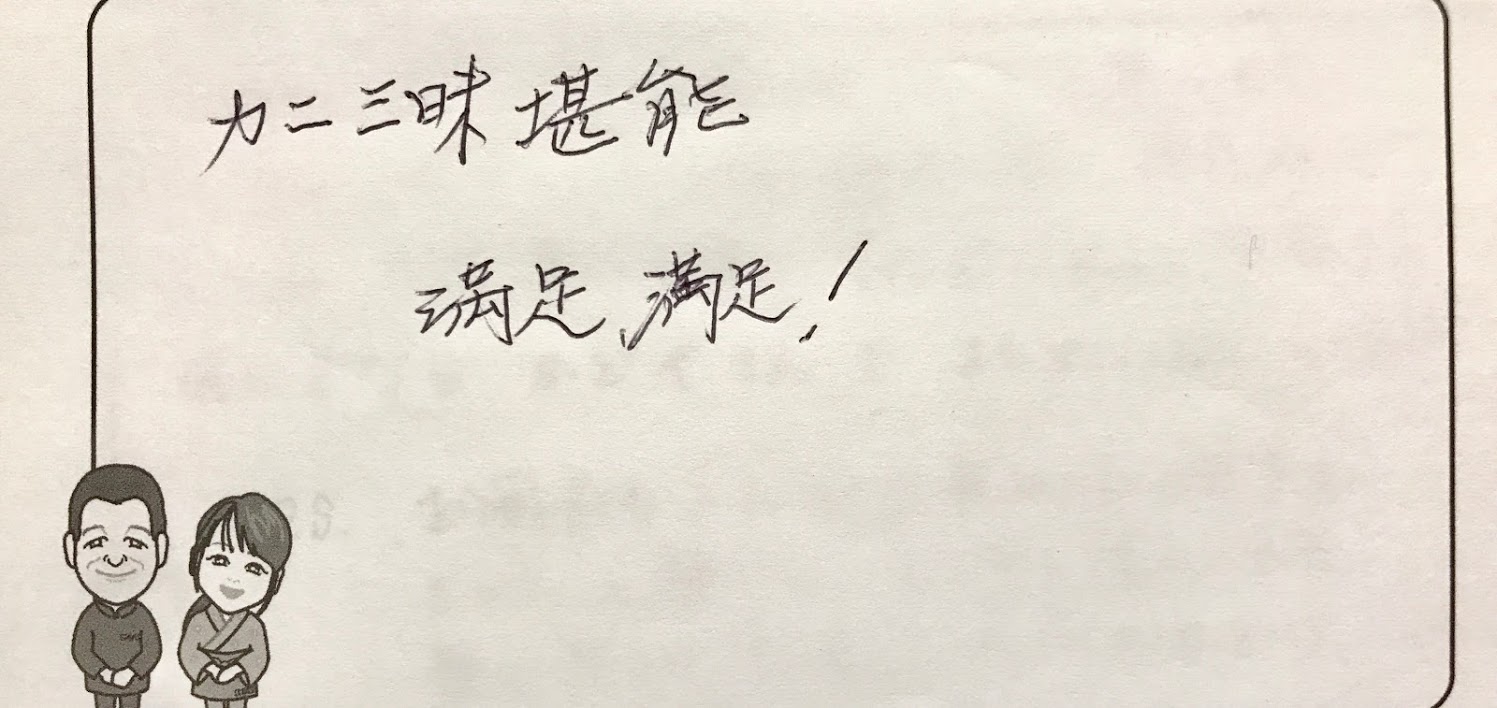 カニ三昧堪能
満足、満足!